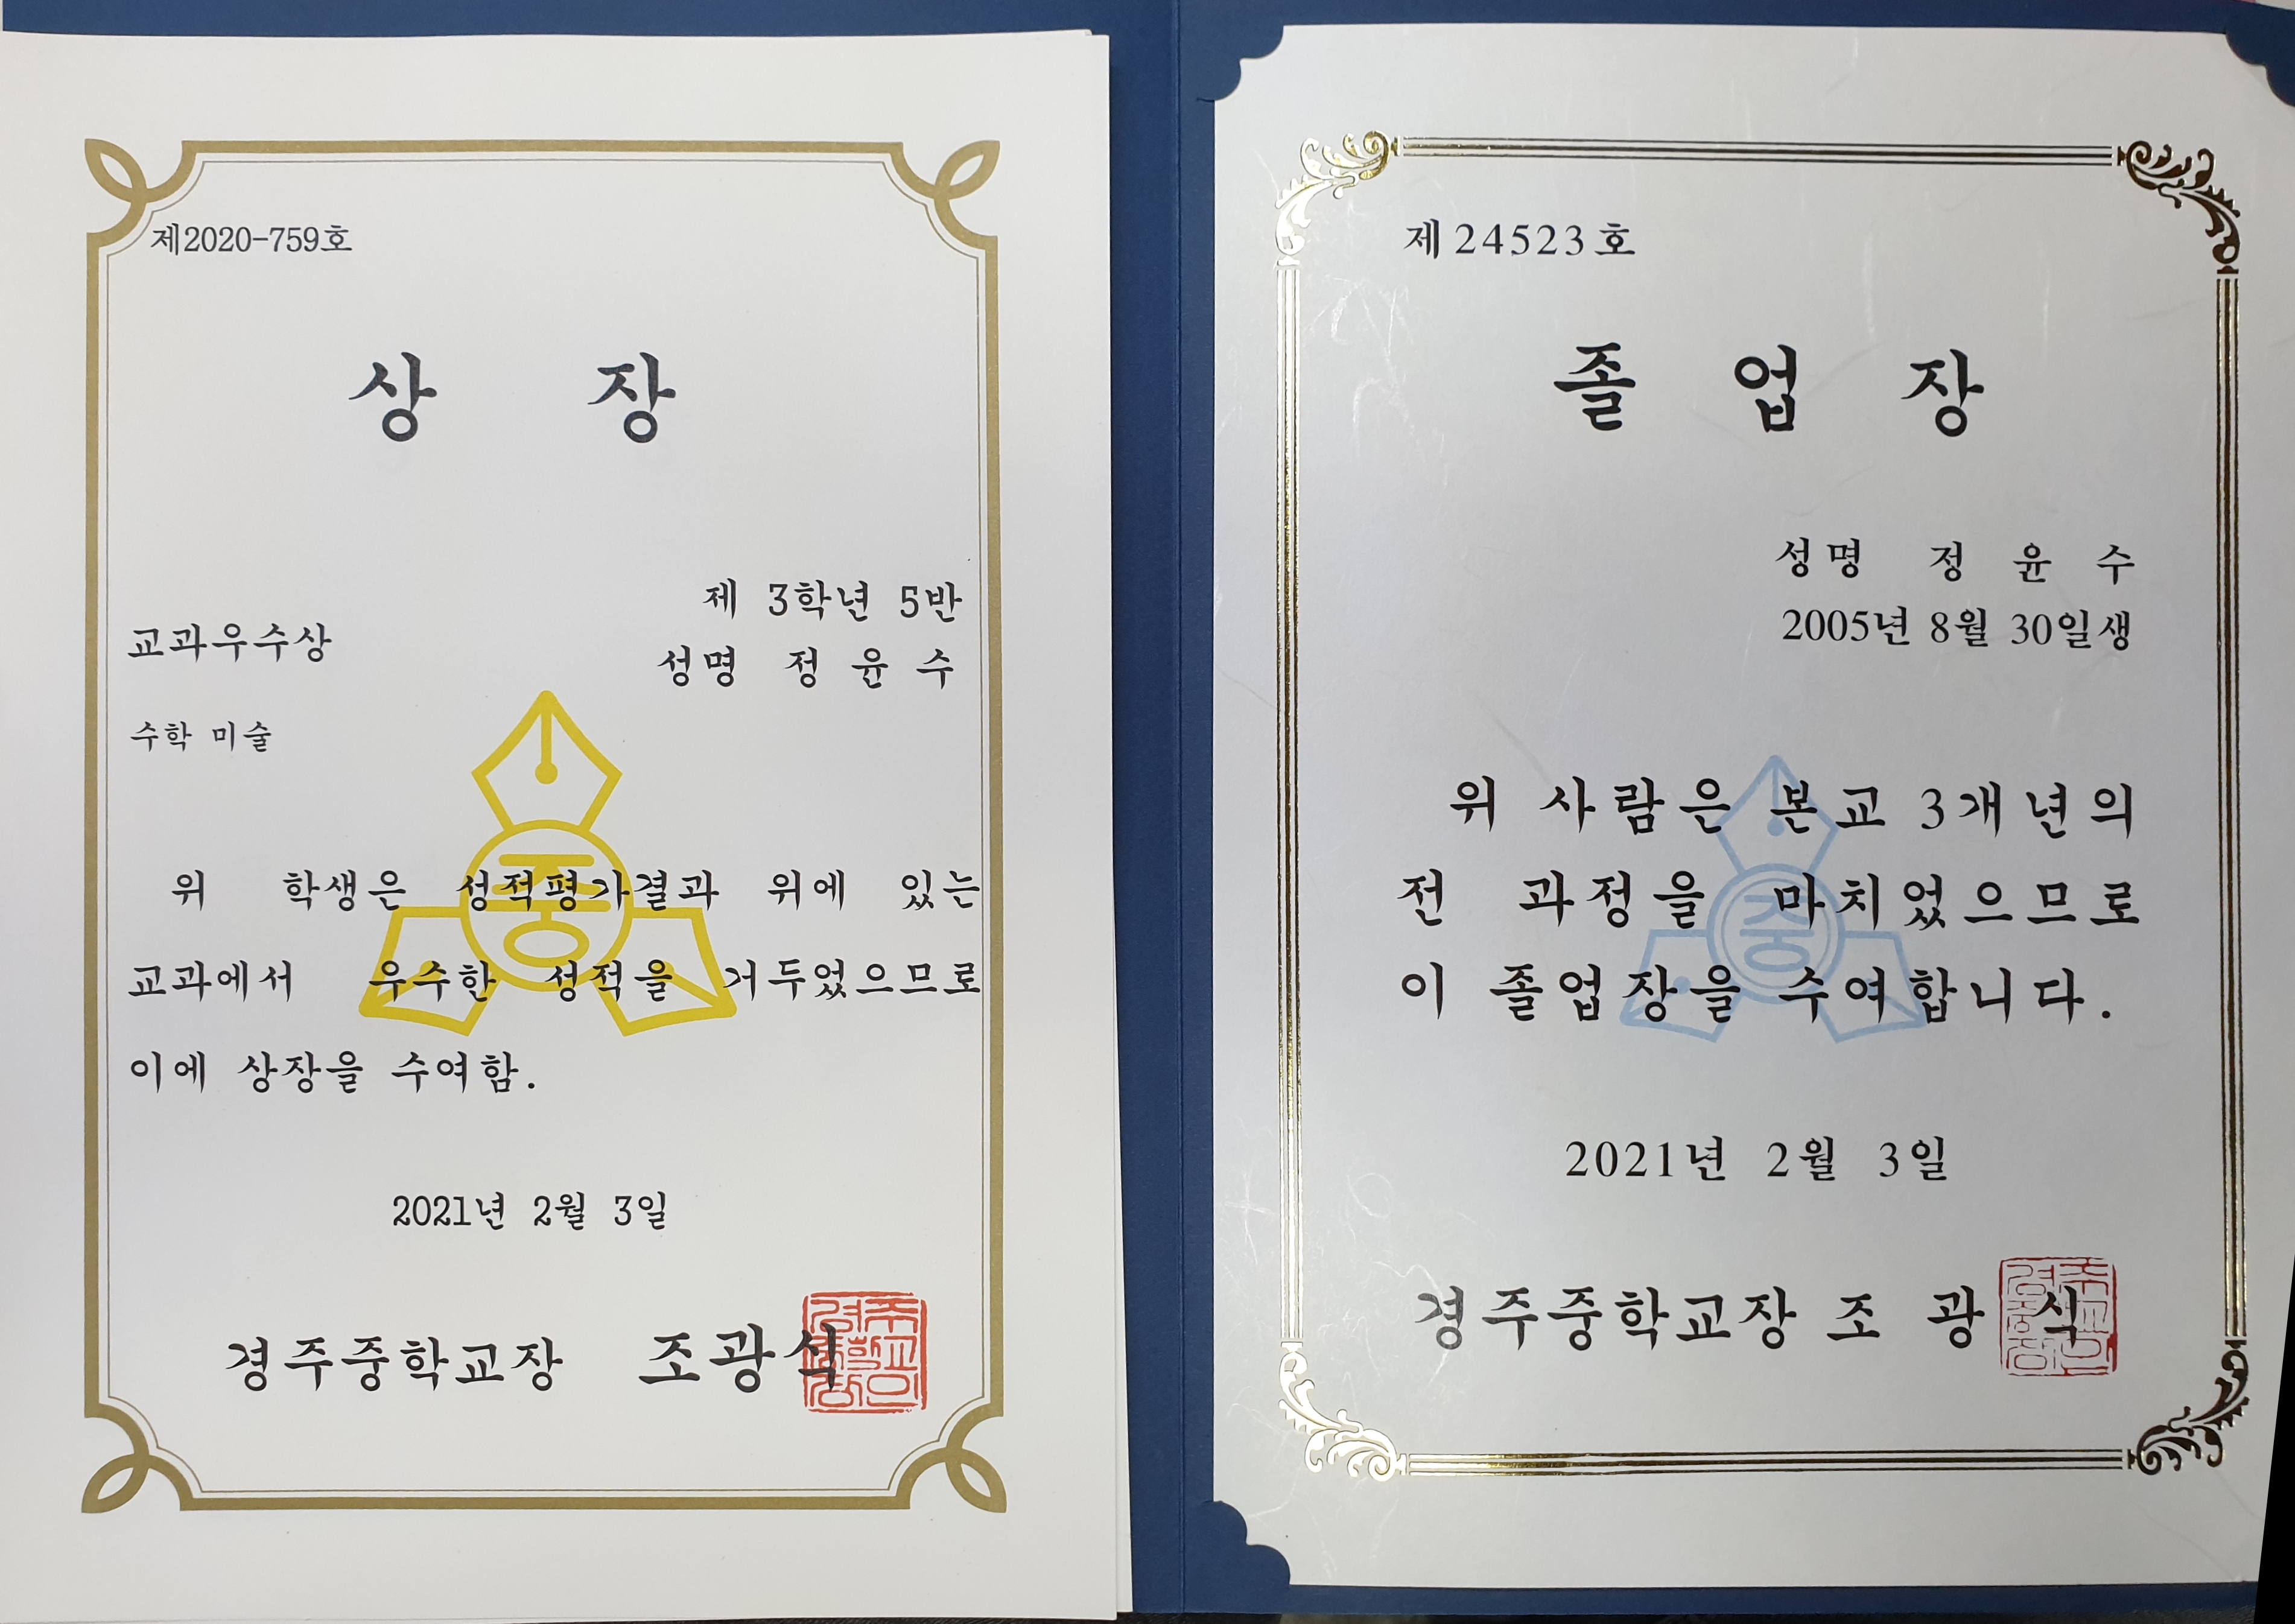 제2020-759호
상 장
제 3학년 5반
교과우수상
성명 정 윤 수
수학 미술
위 학생은 성적평가결과 위에 있는
교과에서 우수한 성적을 거두었으므로
이에 상장을 수여함.
2021년 2월 3일
경주중학교장 조광식
중
제 24523 호
졸 업 장
성명 정 윤 수
2005년 8월 30일생
위 사람은 본교 3개년의
전 과정을 마치었으므로
이 졸업장을 수여합니다.
2021년 2월 3일
경주중학교장 조 광 식
중